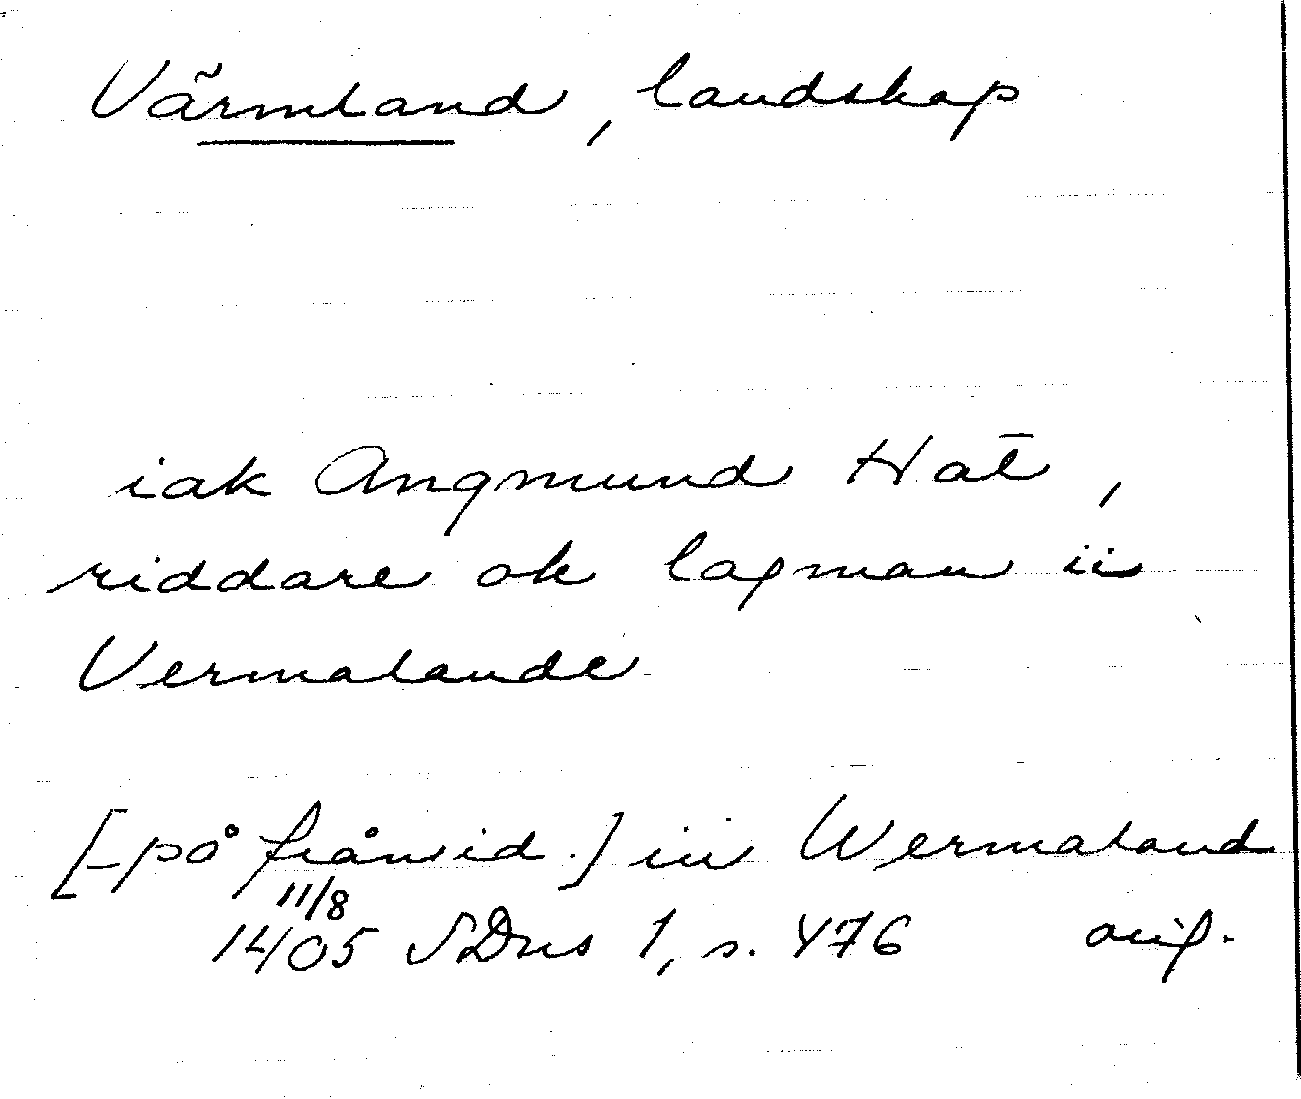 Värmland, landskap
iak Angmund Hat̄,
riddare ok lagman ii
Vermalande
[på frånsid.] iii Wermaland
11/8
1405 SDns 1, s. 476 orig.